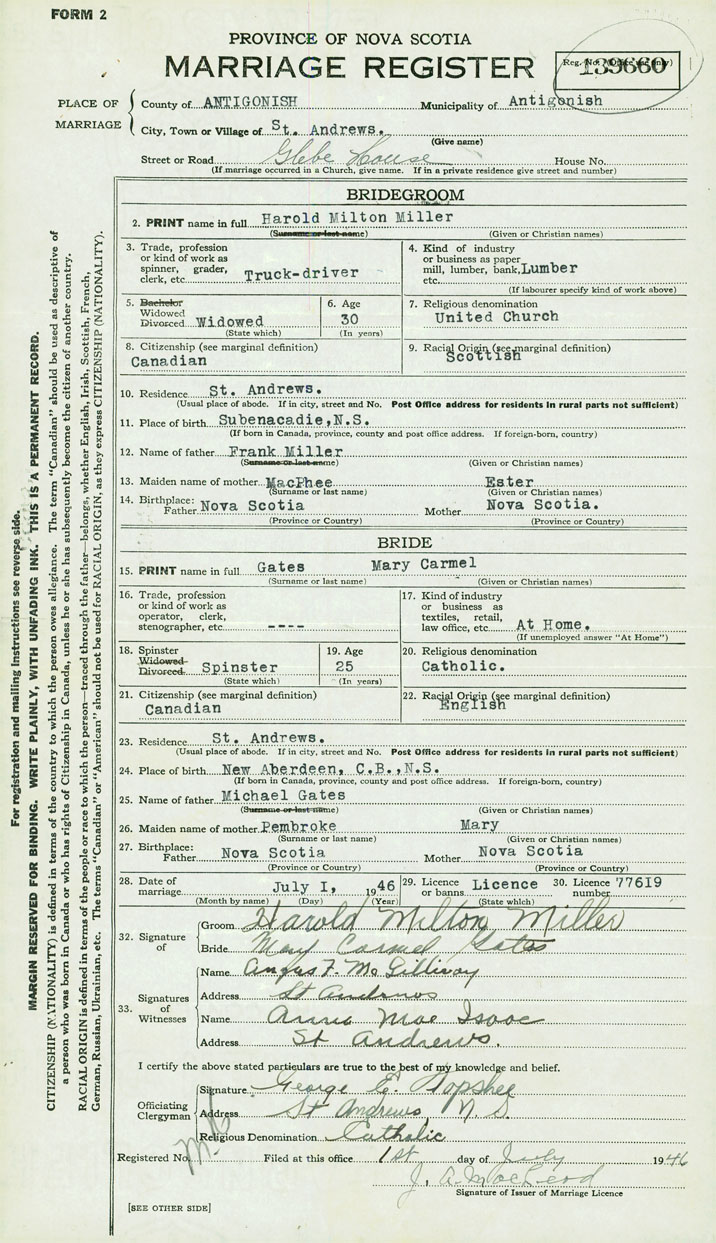 FORM 2
PROVINCE OF NOVA SCOTIA
MARRIAGE REGISTER
Reg. No. (Office use only)
PLACE OF MARRIAGE
County of ANTIGONISH Municipality of Antigonish
City, Town or Village of St. Andrews.
(Give name)
Street or Road Glebe House House No.
(If marriage occurred in a Church, give name. If in a private residence give street and number)
BRIDEGROOM
2. PRINT name in full Harold Milton Miller
(Surname or last name) (Given or Christian names)
3. Trade, profession or kind of work as spinner, grader, clerk, etc. Truck-driver
4. Kind of industry or business as paper mill, lumber, bank, etc. Lumber
(If labourer specify kind of work above)
5. Bachelor Widowed Divorced Widowed
(State which)
6. Age 30
(In years)
7. Religious denomination
United Church
8. Citizenship (see marginal definition)
Canadian
9. Racial Origin (see marginal definition)
Scottish
10. Residence St. Andrews.
(Usual place of abode. If in city, street and No. Post Office address for residents in rural parts not sufficient)
11. Place of birth Subenacadie, N.S.
(If born in Canada, province, county and post office address. If foreign-born, country)
12. Name of father Frank Miller
(Surname or last name) (Given or Christian names)
13. Maiden name of mother MacPhee Ester
(Surname or last name) (Given or Christian names)
14. Birthplace: Father Nova Scotia Mother Nova Scotia.
(Province or Country) (Province or Country)
BRIDE
15. PRINT name in full Gates Mary Carmel
(Surname or last name) (Given or Christian names)
16. Trade, profession or kind of work as operator, clerk, stenographer, etc. ----
17. Kind of industry or business as textiles, retail, law office, etc. At Home.
(If unemployed answer "At Home")
18. Spinster Widowed Divorced Spinster
(State which)
19. Age 25
(In years)
20. Religious denomination
Catholic.
21. Citizenship (see marginal definition)
Canadian
22. Racial Origin (see marginal definition)
English
23. Residence St. Andrews.
(Usual place of abode. If in city, street and No. Post Office address for residents in rural parts not sufficient)
24. Place of birth New Aberdeen, C.B., N.S.
(If born in Canada, province, county and post office address. If foreign-born, country)
25. Name of father Michael Gates
(Surname or last name) (Given or Christian names)
26. Maiden name of mother Pembroke Mary
(Surname or last name) (Given or Christian names)
27. Birthplace: Father Nova Scotia Mother Nova Scotia
(Province or Country) (Province or Country)
28. Date of marriage July 1, 1946
(Month by name) (Day) (Year)
29. Licence or banns Licence
(State which)
30. Licence number 77619
32. Signature of
Groom Harold Milton Miller
Bride Mary Carmel Gates
33. Signatures of Witnesses
Name Angus F. McGillivray
Address St Andrews
Name Annie Mae Isaac
Address St Andrews.
I certify the above stated particulars are true to the best of my knowledge and belief.
Officiating Clergyman
Signature George E.
Address St Andrews N. S.
Religious Denomination Catholic
Registered No. Filed at this office 1st day of July 1946
J. A. MacLeod
Signature of Issuer of Marriage Licence
[SEE OTHER SIDE]
For registration and mailing instructions see reverse side.
MARGIN RESERVED FOR BINDING. WRITE PLAINLY, WITH UNFADING INK. THIS IS A PERMANENT RECORD.
CITIZENSHIP (NATIONALITY) is defined in terms of the country to which the person owes allegiance. The term "Canadian" should be used as descriptive of
a person who was born in Canada or who has rights of Citizenship in Canada, unless he or she has subsequently become the citizen of another country.
RACIAL ORIGIN is defined in terms of the people or race to which the person—traced through the father—belongs, whether English, Irish, Scottish, French,
German, Russian, Ukrainian, etc. The terms "Canadian" or "American" should not be used for RACIAL ORIGIN, as they express CITIZENSHIP (NATIONALITY).